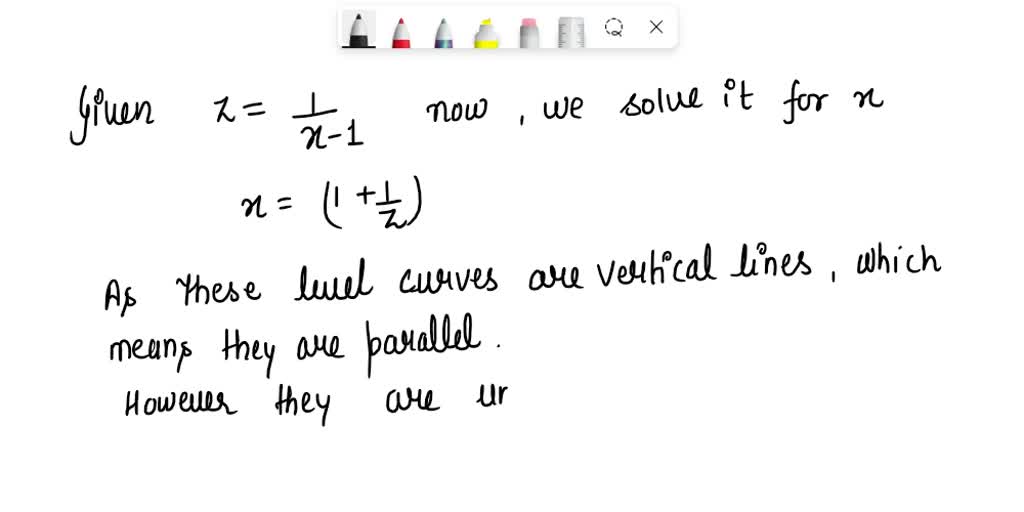 Given z = 1/(x-1) now, we solve it for x
x = (1 + 1/z)
As these level curves are vertical lines, which
means they are parallel.
However they are ur